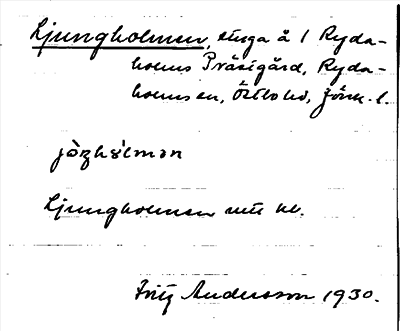 Ljungholmen, änga å 1 Ryda-
holms Prästgård, Ryda-
holms sn, Östbo hd, Jönk. l.
Ljungholmen
Fritz Andersson 1930.